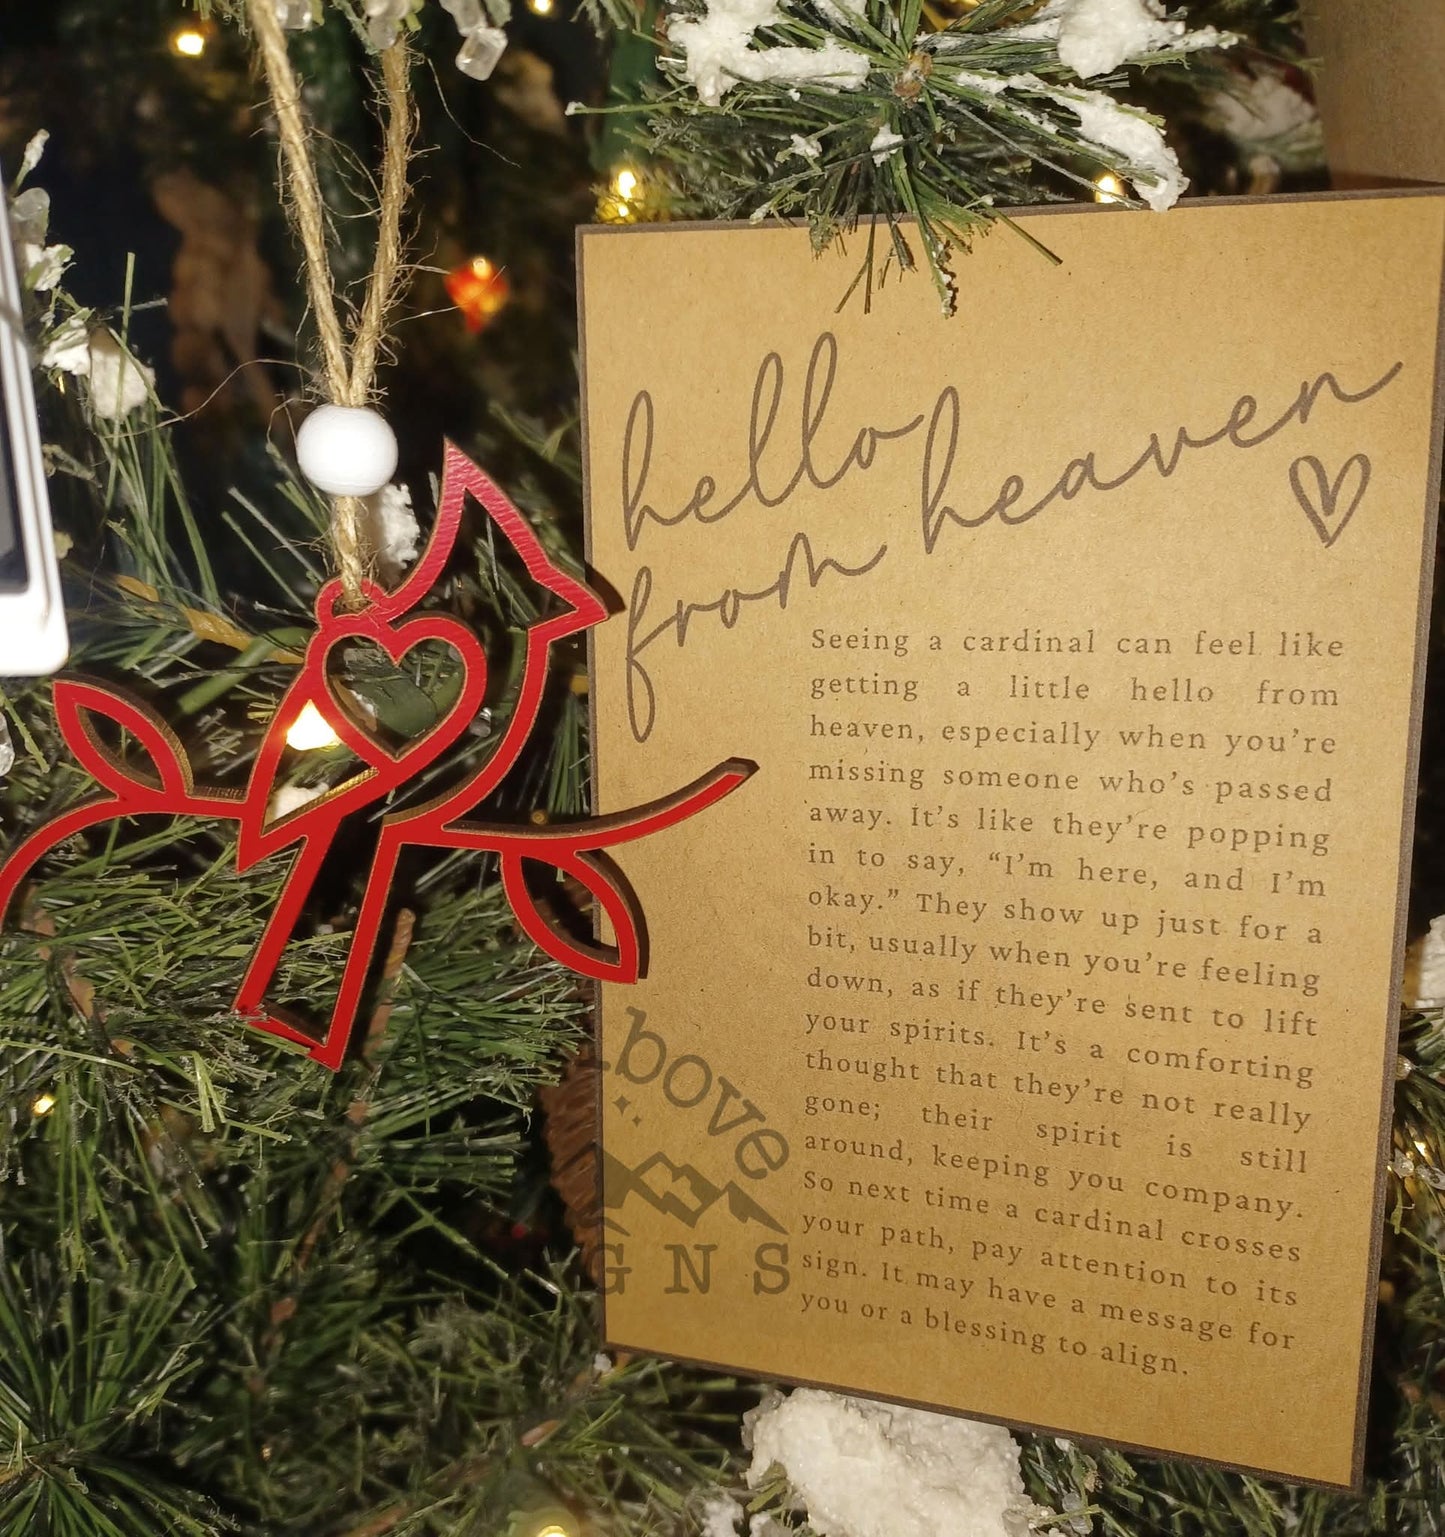 hello
from heaven
Seeing a cardinal can feel like
getting a little hello from
heaven, especially when you’re
missing someone who’s passed
away. It’s like they’re popping
in to say, “I’m here, and I’m
okay.” They show up just for a
bit, usually when you’re feeling
down, as if they’re sent to lift
your spirits. It’s a comforting
thought that they’re not really
gone; their spirit is still
around, keeping you company.
So next time a cardinal crosses
your path, pay attention to its
sign. It may have a message for
you or a blessing to align.